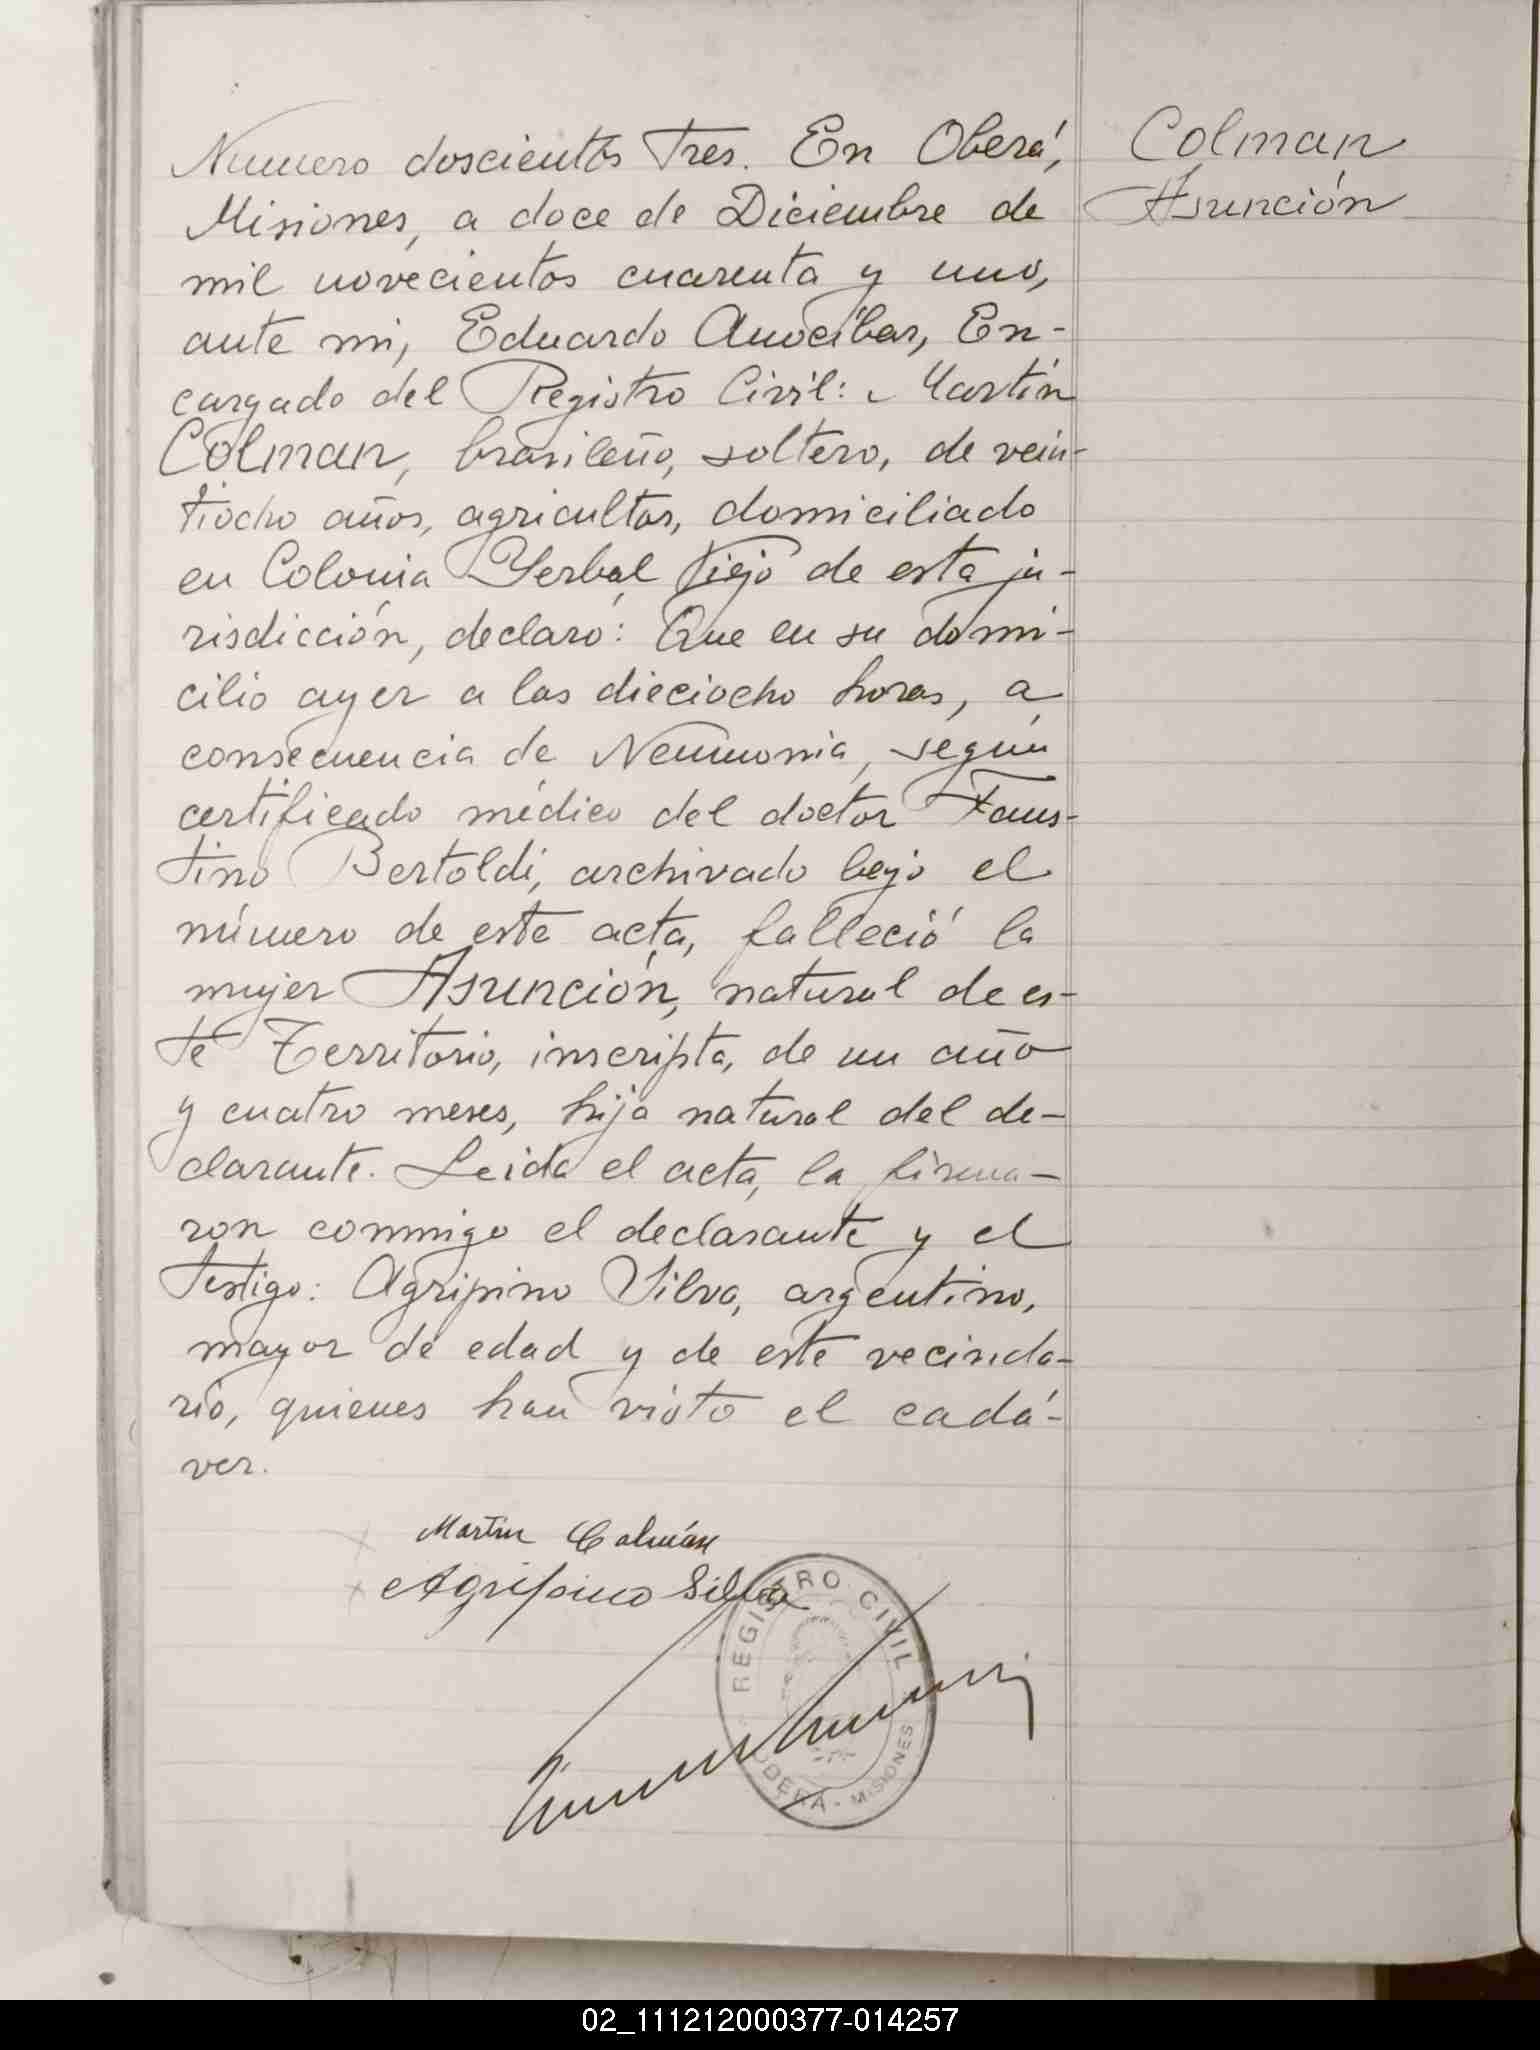 Numero doscientos tres. En Oberá,
Misiones, a doce de Diciembre de
mil novecientos cuarenta y uno,
ante mi, Eduardo Anocíbar, En-
cargado del Registro Civil: Martín
Colman, brasileño, soltero, de vein-
tiocho años, agricultor, domiciliado
en Colonia Yerbal Viejo de esta ju-
risdicción, declaró: Que en su domi-
cilio ayer a las dieciocho horas, a
consecuencia de Neumonia, según
certificado médico del doctor Faus-
tino Bertoldi, archivado bajo el
número de este acta, falleció la
mujer Asunción, natural de es-
te Territorio, inscripta, de un año
y cuatro meses, hija natural del de-
clarante. Leida el acta, la firma-
ron conmigo el declarante y el
testigo: Agripino Silva, argentino,
mayor de edad y de este vecinda-
rio, quienes han visto el cadá-
ver.
Colman
Asunción
Martin Colmán
Agripino Silva
REGISTRO CIVIL
OBERA - MISIONES
02_111212000377-014257